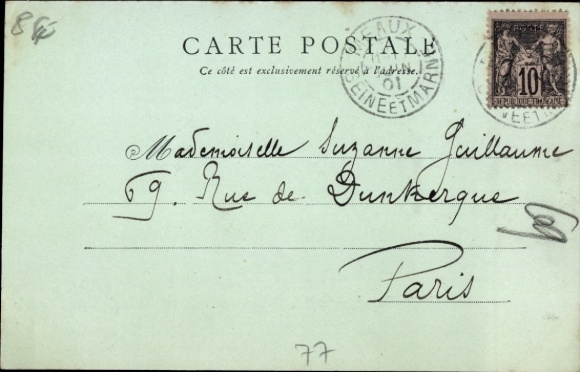 8 €
CARTE POSTALE
Ce côté est exclusivement réservé à l'adresse.
MEAUX
JUIN
01
SEINE ET MARNE
POSTE
10
REPUBLIQUE FRANÇAISE
Mademoiselle Suzanne Guillaume
69. Rue de Dunkerque
Paris
69
77